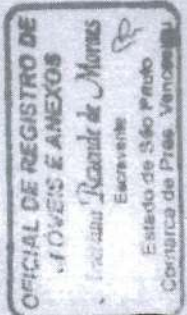 OFICIAL DE REGISTRO DE
IMÓVEIS E ANEXOS
Rezende de Moraes
Escrevente
Estado de São Paulo
Comarca de Pres. Venceslau